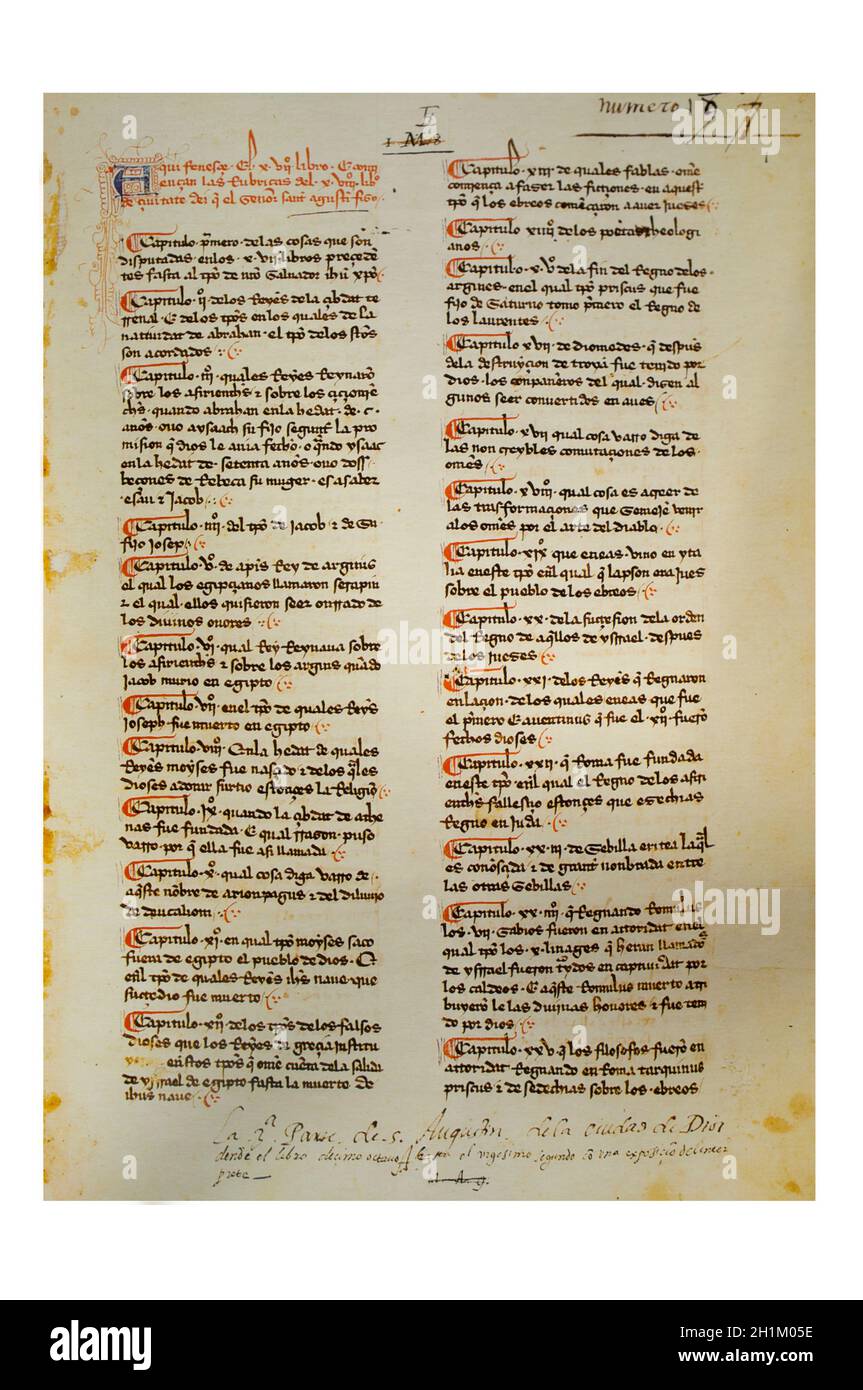 numero
I
1 M 8
Aqui fenesçe · El · x · vıj libro · E comi
ençan las Rubricas del · x · viij libro
de çiuitate dei q̃ el Señor sant agustin fiso
Capitulo · p̃mero · de las cosas que son
disputadas en los · x · vij libros preçedẽ
tes fasta al tp̃o de nr̃o Saluador ihũ xp̃o
Capitulo · ij · de los Reyes de la çibdat te
rrenal · E de los tp̃os en los quales de la
natiuidat de abrahan · el tp̃o de los stõs
son acordados
Capitulo · iij · quales Reyes Reynarõ
sobre los asirienchs & sobre los
chs · quando abrahan en la hedat · de · c ·
anos · ouo a ysaach su fijo segunt la pro
mision q̃ dios le auia fecho · o q̃ndo ysaac
en la hedat de · setenta anos · ouo doss ·
beçones de Rebeca su muger · es a saber
· esau & Jacob
Capitulo · iiij · del tp̃o de Jacob & de Su
fijo Joseph
Capitulo · vº · de apis Rey de argiuus
el qual los egipçianos llamaron serapin
& el qual · ellos quisieron seer onrrado de
los diuinos onores
Capitulo · vj · qual Rey Reynaua sobre
los asirienchs & sobre los argius quãdo
Jacob murio en egipto
Capitulo · vij · en el tp̃o de quales Reyes
Joseph fue muerto en egipto
Capitulo · viij · En la hedat de quales
Reyes moyses fue nasçido & de los q̃les
dioses adorar surtio estonçes la Religiõ
Capitulo · ix · quando la çibdat de athe
nas fue fundada · E qual rrason · puso
varro · por q̃ ella fue asi llamada
Capitulo · xº · qual cosa diga varro de ·
aq̃ste nõbre de ariopagus & del diluuio
de deucaliom
Capitulo · xj · en qual tp̃o moyses saco
fuera de egipto el pueblo de dios · E
en el tp̃o de quales Reyes ihs̃ naue que
suçedio fue muerto
Capitulo · xij · de los tp̃os de los falsos
dioses que los Reyes de greçia institu
en estos tp̃os q̃ omẽ cuẽta de la salida
de ysrrael de egipto fasta la muerte de
ihus naue
Capitulo · xiij · de quales fablas · omẽ
comiença a faser las ficçiones · en aquest
tp̃o q̃ los ebreos començaron a auer jueses
Capitulo · xiiij · de los poetas theologi
anos
Capitulo · x · vº · de la fin del Regno de los ·
argines · en el qual tp̃o priscus que fue
fijo de Saturno tomo p̃mero el Regno de
los laurentes
Capitulo · xvij · de diomedes · q̃ despues
de la destruyçion de troya fue tenido por
dios · los conpañeros del qual · disen al
gunos seer conuertidos en aues
Capitulo · xvij qual cosa varro diga de
las non creybles conmutaçiones de los ·
omẽs
Capitulo · xviij · qual cosa es a creer de
las trasformaçiones · que Semeje venir
a los omẽs por el arte del diablo
Capitulo · xix · que eneas · vino en yta
lia en este tp̃o en el qual q̃ lapson era jues
sobre el pueblo de los ebreos
Capitulo · xx · de la sucçesion de la orden
del Regno de aq̃llos de ysrrael · despues
de los jueses
Capitulo · xxi · de los Reyes q̃ Regnaron
en laçion · de los quales eneas que fue
el p̃mero E auentinus q̃ fue el · xij · fuerõ
fechos dioses
Capitulo · xxij · q̃ Roma fue fundada
en este tp̃o · en el qual el Regno de los asiri
enchs fallesçio estonçes que esechias
Regno en Juda
Capitulo · xx · iij · de Sebilla eritea la q̃l
es conosçida & de grant nonbrada entre
las otras Sebillas
Capitulo · xx · iiij · q̃ Regnando Romulus
los · vij · Sabios fueron en actoridat en el
qual tp̃o los · x · linages · q̃ heran llamados
de ysrrael fueron traydos en captiuidat por
los caldeos · E aq̃ste Romulus muerto atri
buyerõ le las diuinas honores & fue teni
do por dios
Capitulo · xxv · q̃ los filosofos fuerõ en
actoridat Regnando en Roma tarquinus
priscus & de sedechias sobre los · ebreos
La 2ª Parte de S. Augustin, de la ciudad de Dios
dende el libro decimo octavo hasta el vigesimo segundo cõ una exposiçiõ del inter
prete
alamy
Image ID: 2H1M05E
www.alamy.com